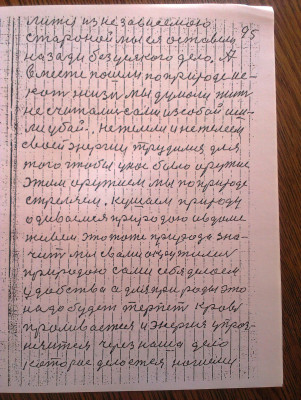 литу из независемою
95
стороной мы ся оставим
на зади безо усякого дело, А
Вместе пошли по природе ис-
кат жизн мы думаем жит
не считали сами из собой
ли убай. , не жалеем
своей энергии трудимся для
того чтобы у нас было оружие
этим оружием мы по природе
стреляем. Кушаем природу
одиваемся природою в доме
живем это тоже природа зна-
чит мы сваими окружили
природаю сами себя делаем
удобства а для природы это
надо будет терпет Кровь
праливается и энергия упраз-
няится через наша дело
которое делается нашими